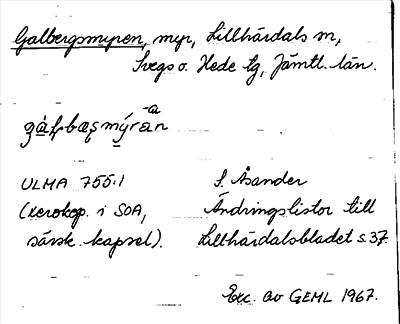 Galbergsmyren, myr, Lillhärdals sn,
Svegs o. Hede tg, Jämtl. län.
ULMA 755:1
(xerokop. i SOA,
särsk. kapsel).
S. Åsander
Ändringslistor till
Lillhärdalsbladet s. 37.
Exc. av GEML 1967.